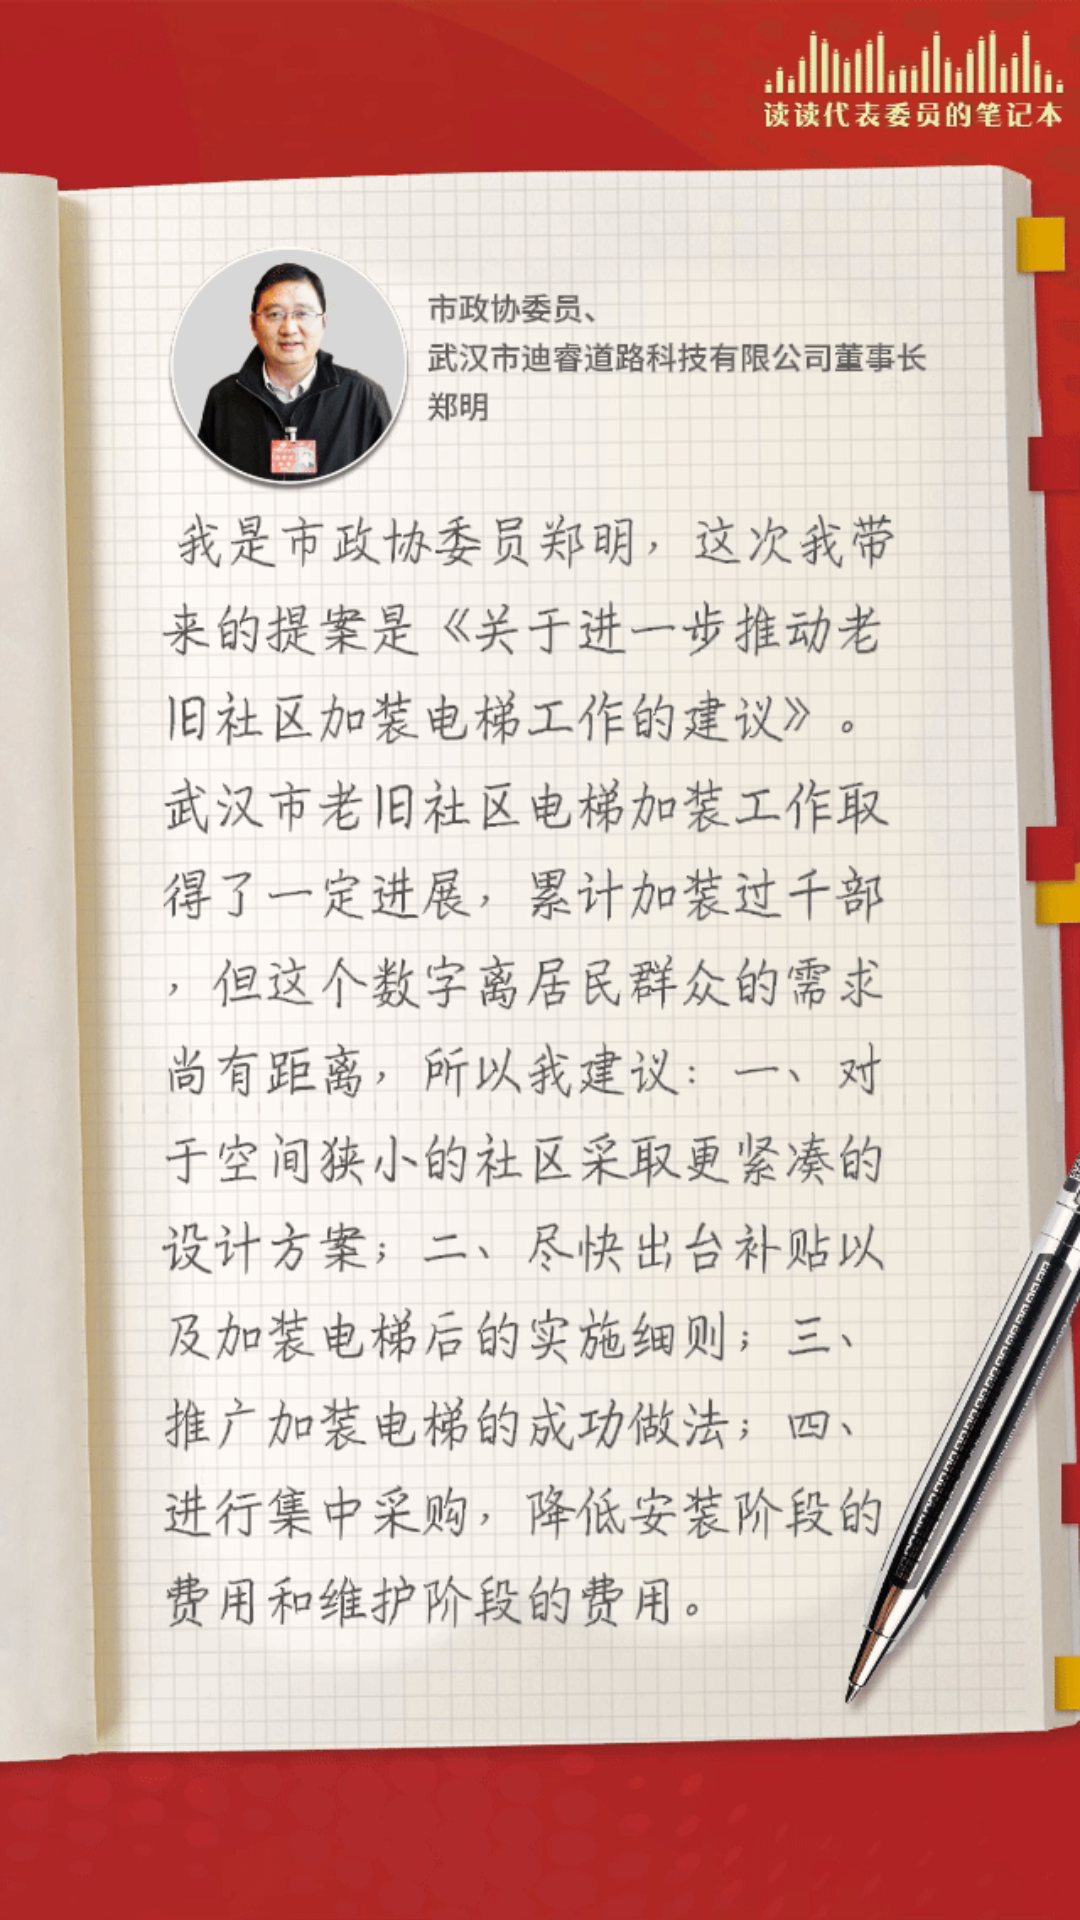 读读代表委员的笔记本
市政协委员、
武汉市迪睿道路科技有限公司董事长
郑明
我是市政协委员郑明，这次我带
来的提案是《关于进一步推动老
旧社区加装电梯工作的建议》。
武汉市老旧社区电梯加装工作取
得了一定进展，累计加装过千部
，但这个数字离居民群众的需求
尚有距离，所以我建议：一、对
于空间狭小的社区采取更紧凑的
设计方案；二、尽快出台补贴以
及加装电梯后的实施细则；三、
推广加装电梯的成功做法；四、
进行集中采购，降低安装阶段的
费用和维护阶段的费用。